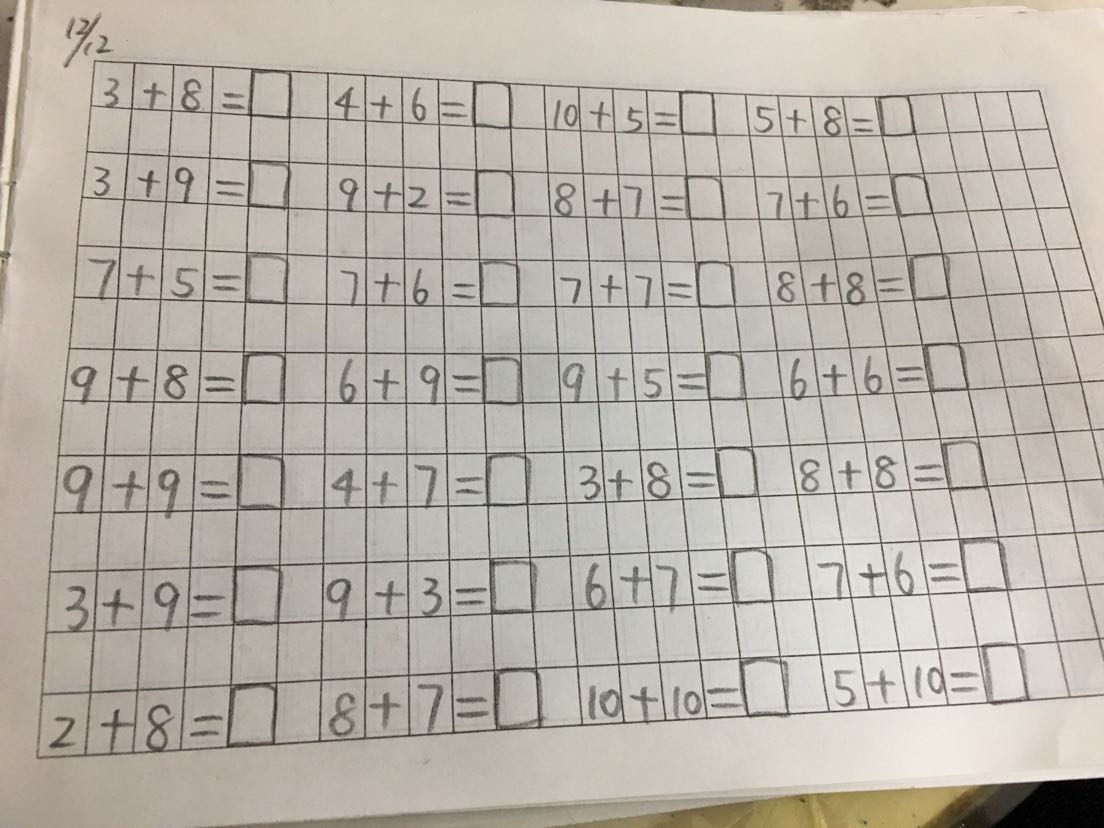 12/12
3+8=□ 4+6=□ 10+5=□ 5+8=□
3+9=□ 9+2=□ 8+7=□ 7+6=□
7+5=□ 7+6=□ 7+7=□ 8+8=□
9+8=□ 6+9=□ 9+5=□ 6+6=□
9+9=□ 4+7=□ 3+8=□ 8+8=□
3+9=□ 9+3=□ 6+7=□ 7+6=□
2+8=□ 8+7=□ 10+10=□ 5+10=□